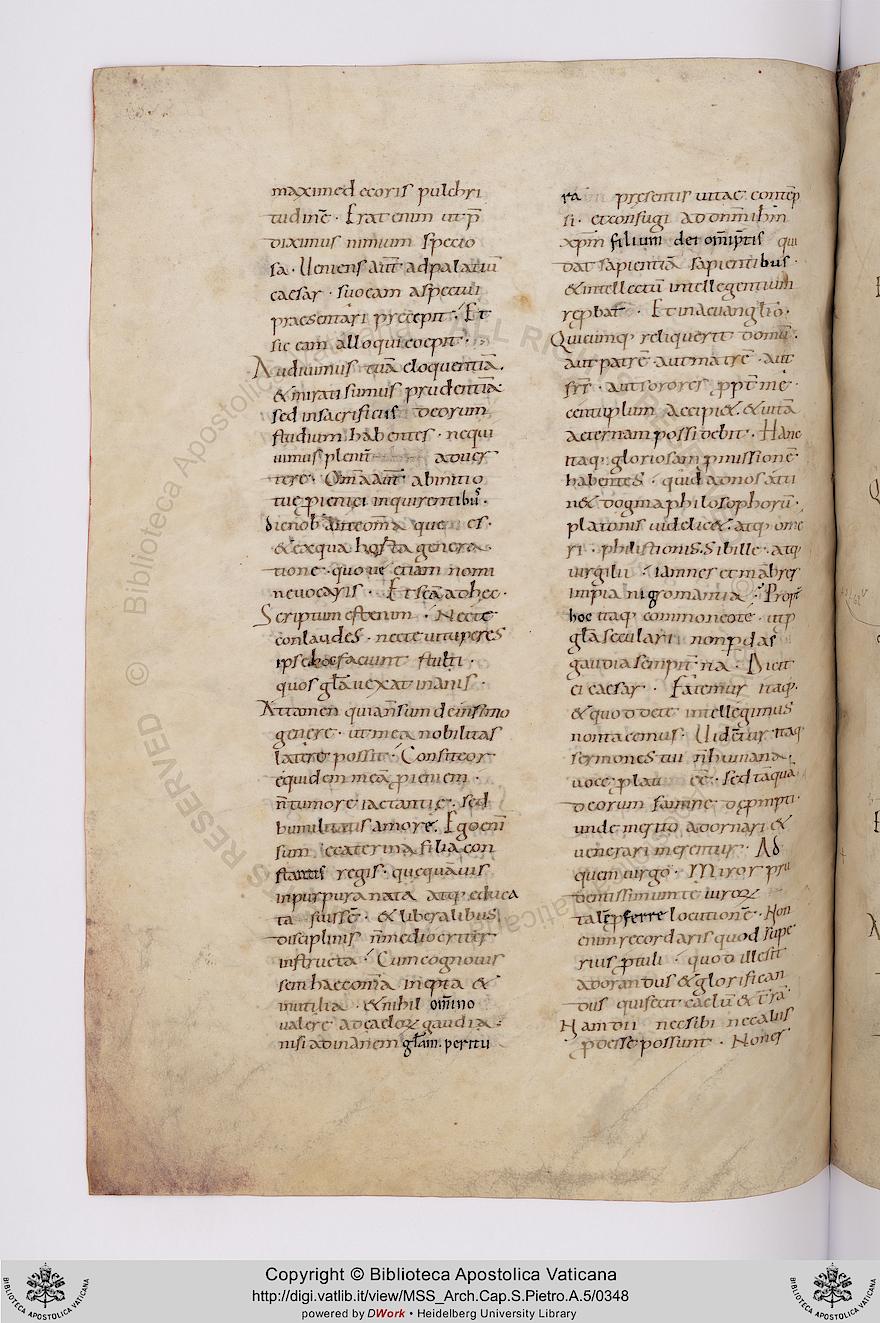 maximed ecoris pulchri
tudinē · Erat enim ut p̄
diximus nimium specio
sa · Ueniens aūt ad palatiū
caesar · suo eam aspectui
praesentari precepit · Et
sic eam alloqui coepit ·
Audiuimus tuā eloquentiā ·
& mirati sumus prudentiā
sed in sacrificiis deorum
studium habentes · nequi
uimus aduer
tere · Om̄a aūt ab initio
tuę inquirentibus ·
& ex qua genera
tione · quo uę etiam nomi
ne uocaris · Et adhec ·
Scriptum est enim · Nec te
conlaudes · nec te uituperes
ipse hoc faciunt stulti ·
quos gl̄a uexat inanis ·
Attamen
genere · ut mea nobilitas
latere possit · Confiteor
equidem meā
n̄ tumore iactantię · sed
humilitatis amore · Ego enī
sum ecaterina filia con
regis · que quāuis
in purpura nata atq; educa
ta fuissē · & liberalibus
disciplinis n̄ mediocriter
instructa · Cum cognouis
sem haec om̄ia inepta &
inutilia · & nihil om̄ino
ualere ad caeloꝝ gaudia ·
nisi ad inanem gl̄am · peritu
ra presentis uitae contēp
si · et confugi ad dn̄m ih̄m
xp̄m filium dei om̄iptis qui
dat sapientiā sapientibus ·
& intellectū intellegentium
· Et in aeuanglīo ·
Quicumq; reliquerit domū ·
aut patrē · aut matrē · aut
frs̄ · aut sorores ppt me ·
centuplum accipi& · & uitā
aeternam possidebit · Hanc
itaq; gloriosam pmissionē
habentes · quid ad nos atti
n& dogma philosophorū ·
platonis uidelic& · atq; ome
ri · philistionis · Sibille · atq;
uirgilii · iamnes et mābres
impia nigromantia ·
hoc itaq; commoneo te · ut p
gl̄a seculari non pdas
gaudia sempitna · Dicit
ei caesar · Fatemur itaq;
& quod de te intellegimus
non tacemus · Uidetur itaq;
sermones tui n̄ humana
uoce · sed tāqua
deorum
unde merito adornari &
uenerari merentur · Ad
quem uirgo · Miror
dentissimum te uiroꝝ
talē pferre locutionē · Non
enim recordaris quod supe
rius ptuli · quod ille sit
adorandus & glorifican
dus qui fecit caelū & trā
Nam dii nec sibi nec aliis
pdesse possunt · Nones
Copyright © Biblioteca Apostolica Vaticana
http://digi.vatlib.it/view/MSS_Arch.Cap.S.Pietro.A.5/0348
powered by DWork • Heidelberg University Library